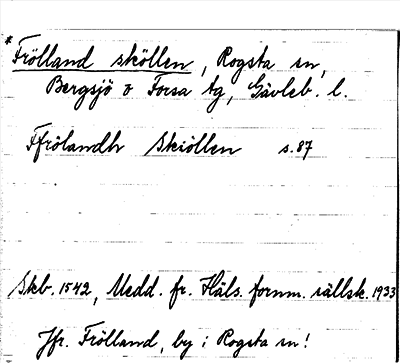 * Frölland sköllen, Rogsta sn,
Bergsjö o Forsa tg, Gävleb. l.
Ffrölandh Skiöllen s. 87
Skb. 1542, Medd. fr. Häls. fornm. sällsk. 1933
Jfr. Frölland, by i Rogsta sn!